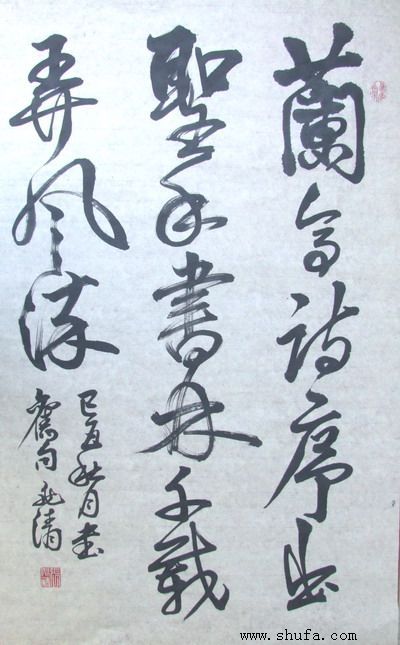 蘭亭詩序出
聖手書林千載
弄風流
己丑秋月書
舊句清
www.shufa.com